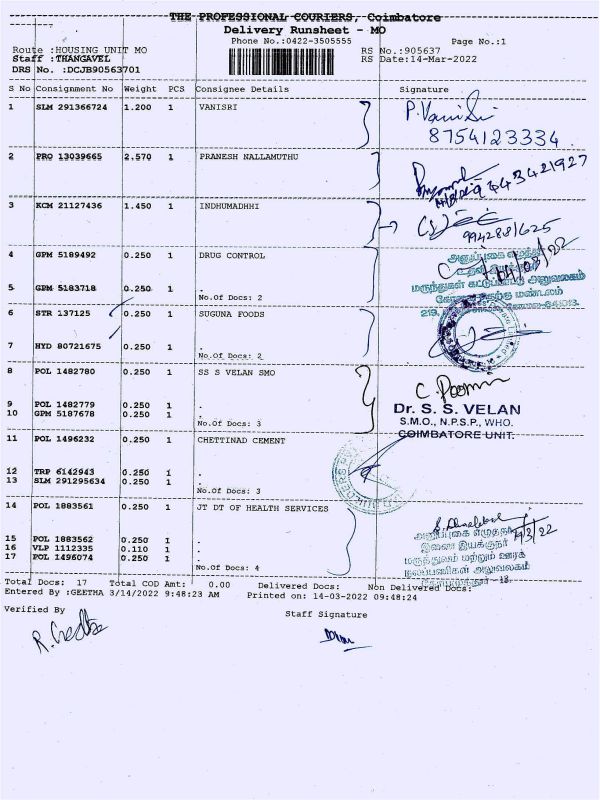 THE PROFESSIONAL COURIERS, Coimbatore
Delivery Runsheet - MO
Phone No.:0422-3505555
Page No.:1
Route :HOUSING UNIT MO
RS No.:905637
Staff :THANGAVEL
RS Date:14-Mar-2022
DRS No. :DCJB90563701
S No Consignment No Weight PCS Consignee Details Signature
1 SLM 291366724 1.200 1 VANISRI
P. Vani Sri
8754123334
2 PRO 13039665 2.570 1 PRANESH NALLAMUTHU
943421927
3 KCM 21127436 1.450 1 INDHUMADHHI
9942881625
4 GPM 5189492 0.250 1 DRUG CONTROL
5 GPM 5183718 0.250 1 .
No.Of Docs: 2
மருந்துகள் கட்டுப்பாட்டு அலுவலகம்
6 STR 137125 0.250 1 SUGUNA FOODS
7 HYD 80721675 0.250 1 .
No.Of Docs: 2
8 POL 1482780 0.250 1 SS S VELAN SMO
9 POL 1482779 0.250 1 .
10 GPM 5187678 0.250 1 .
No.Of Docs: 3
Dr. S. S. VELAN
S.M.O., N.P.S.P., WHO.
COIMBATORE UNIT.
11 POL 1496232 0.250 1 CHETTINAD CEMENT
12 TRP 6142943 0.250 1 .
13 SLM 291295634 0.250 1 .
No.Of Docs: 3
14 POL 1883561 0.250 1 JT DT OF HEALTH SERVICES
15 POL 1883562 0.250 1 .
16 VLP 1112335 0.110 1 .
17 POL 1496074 0.250 1 .
No.Of Docs: 4
இணை இயக்குநர்
மருத்துவம் மற்றும் ஊரக
Total Docs: 17 Total COD Amt: 0.00 Delivered Docs: Non Delivered Docs:
Entered By :GEETHA 3/14/2022 9:48:23 AM Printed on: 14-03-2022 09:48:24
Verified By
Staff Signature